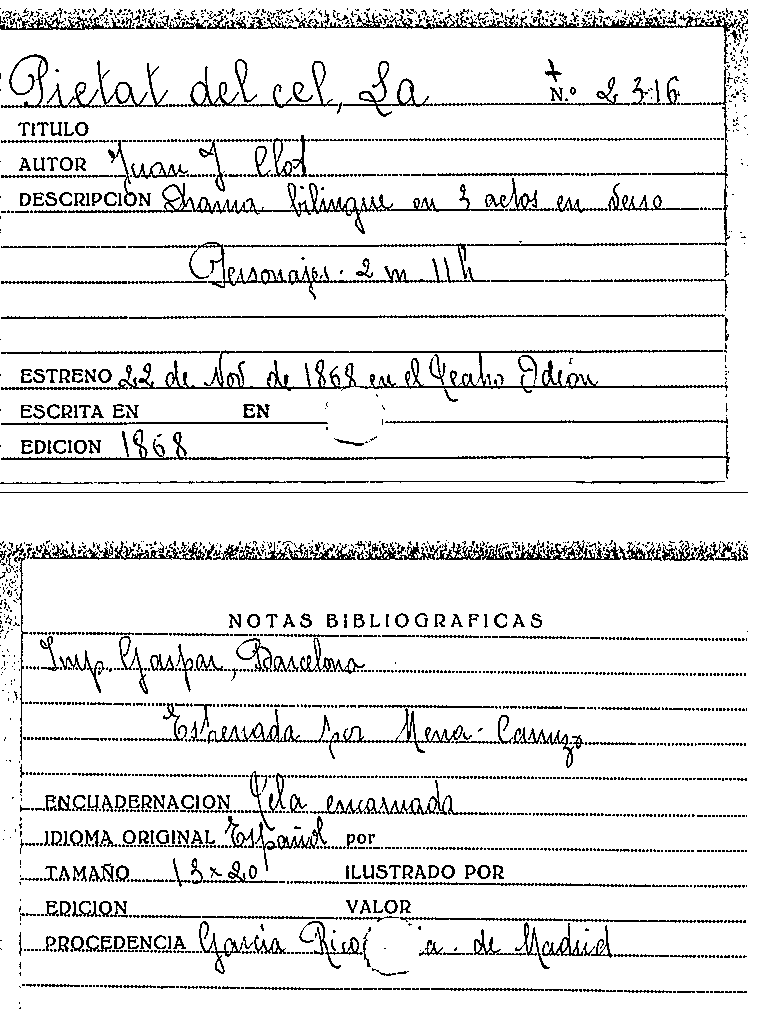 Pietat del cel, La N.º 2316
TITULO
AUTOR Juan J Clot
DESCRIPCIÓN Drama bilingue en 3 actos en verso
Personajes. 2 m 11 h
ESTRENO 22 de Nov. de 1868 en el Teatro Odeón
ESCRITA EN EN
EDICION 1868
NOTAS BIBLIOGRAFICAS
Imp. Gaspar, Barcelona
Estrenada por Mena-
ENCUADERNACION Tela encarnada
IDIOMA ORIGINAL Español por
TAMAÑO 13 x 20 ILUSTRADO POR
EDICION VALOR
PROCEDENCIA García Rico a. de Madrid